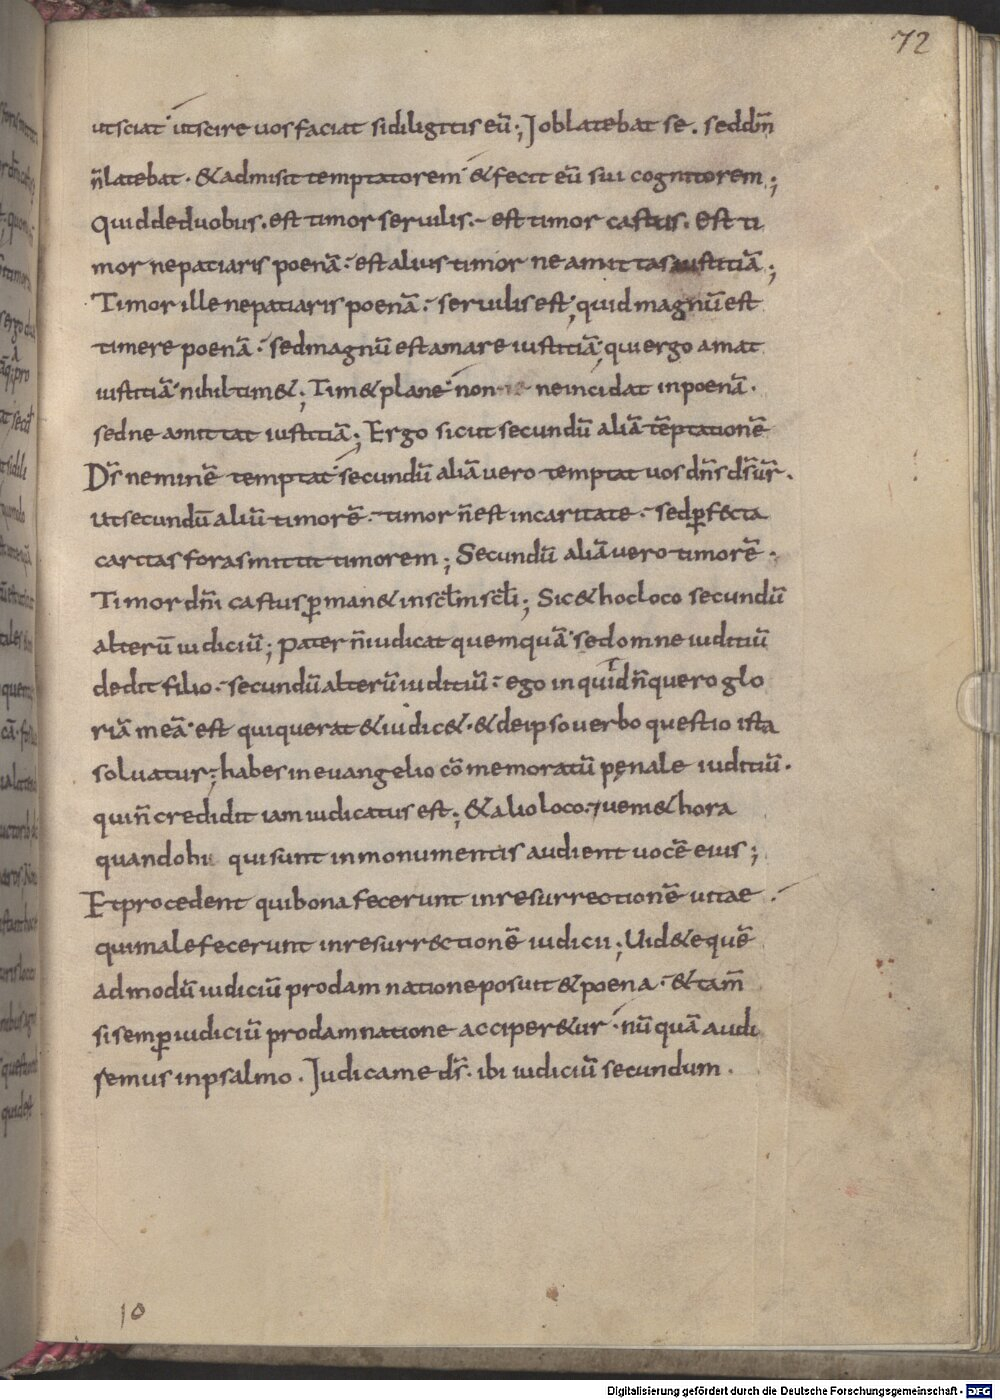 72
utsciat utscire uos faciat sidiligitis eū; Job latebat se. sed dm̄
n̄ latebat. & admisit temptatorem & fecit eū sui cognitorem;
Quid de duobus. est timor seruilis. est timor castus. est ti
mor ne patiaris poenā. est alius timor ne amittas iustitiā;
Timor ille ne patiaris poenā. seruilis est, quid magnū est
timere poenā. sed magnū est amare iustitiā, qui ergo amat
iustitiā nihil tim&; Tim& plane non ne incidat in poenā.
sed ne amittat iustitiā; Ergo sicut secundū aliā tēptationē
Ds̄ neminē temptat secundū aliā uero temptat uos dn̄s ds̄ ur̄.
ut secundū aliū timorē. timor n̄ est in caritate. sed ꝑf&cta
caritas foras mittit timorem; Secundū aliā uero timorē.
Timor dn̄i castus ꝑman& in sc̄lm sc̄li; Sic & hoc loco secundū
alterū iudiciū; pater n̄ iudicat quemquā sed omne iuditiū
dedit filio. secundū alterū iuditiū. ego inquid n̄ quero glo
riā meā est qui querat & iudic&. & de ipso uerbo questio ista
soluatur; habes in euangelio cōmemoratū pęnale iuditiū.
qui n̄ credidit iam iudicatus est; & alio loco. uem& hora
quando hi qui sunt in monumentis audient uocē eius;
Et procedent qui bona fecerunt in resurrectionē uitae.
qui male fecerunt in resurr&ctionē iudicii; Uid&e quē
admodū iudiciū pro damnatione posuit & poena. & tam̄
si semꝑ iudiciū pro damnatione acciper&ur. nū quā audi
remus in psalmo. Judica me ds̄. ibi iudiciū secundum.
10
Digitalisierung gefördert durch die Deutsche Forschungsgemeinschaft - DFG